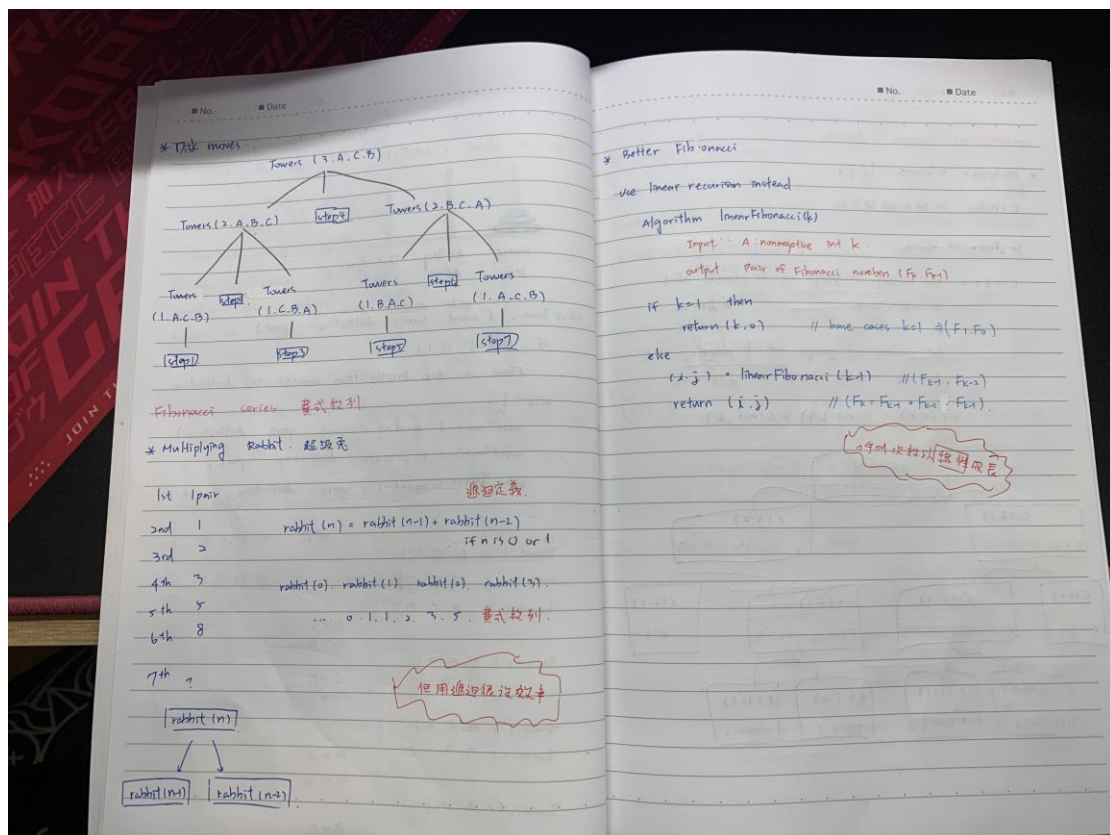 No. Date
* Disk moves
Towers (3.A.C.B)
Towers (2.A.B.C) step4 Towers (2.B.C.A)
Towers step2 Towers Towers step6 Towers
(1.A.C.B) (1.C.B.A) (1.B.A.C) (1.A.C.B)
step1 step3 step5 step7
Fibonacci series 費式數列
* Multiplying Rabbit 超級兔
1st 1pair 遞迴定義.
2nd 1 rabbit (n) = rabbit (n-1) + rabbit (n-2)
3rd 2 if n is 0 or 1
4th 3 rabbit (0). rabbit (1). rabbit (2). rabbit (3).
5th 5 ... 0.1.1.2.3.5. 費式數列.
6th 8
7th ?
但用遞迴很沒效率
rabbit (n)
rabbit (n-1) rabbit (n-2)
No. Date
* Better Fibonacci
use linear recurison instead
Algorithm linearFibonacci(k)
Input : A nonnegative int k.
output : Pair of Fibonacci numbers (Fk Fk-1)
if k=1 then
return (k,0) // base cases k=1 → (F1.F0)
else
(i.j) = linearFibonacci (k-1) // (Fk-1 . Fk-2)
return (i.j) // (Fk = Fk-1 + Fk-2 . Fk-1).
呼叫次數以線性成長
加入
JOIN